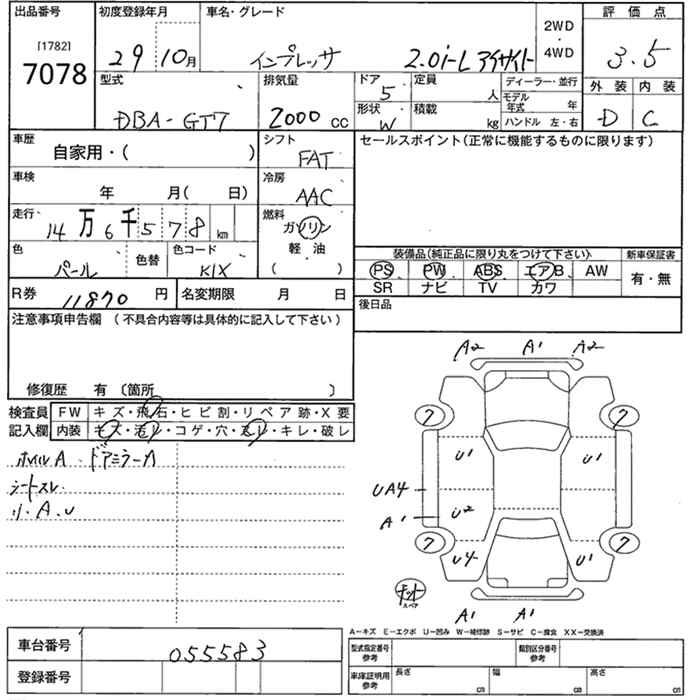 出品番号 初度登録年月 車名・グレード 2WD・4WD 評価点
[1782]
7078 29 10月 インプレッサ 2.0i-L アイサイト 3.5
型式 排気量 ドア 5 定員 人 ディーラー・並行 外装 内装
DBA-GT7 2000 CC 形状 W 積載 kg モデル年式 年 D C
ハンドル 左・右
車歴 自家用・( ) シフト FAT セールスポイント(正常に機能するものに限ります)
車検 年 月( 日) 冷房 AAC
走行 14万6千578 km 燃料 ガソリン
軽・油
( )
色 パール 色替 色コード K1X
装備品(純正品に限り丸をつけて下さい) 新車保証書
PS PW ABS エアB AW 有・無
SR ナビ TV カワ
R券 11870円 名変期限 月 日 後日品
注意事項申告欄 (不具合内容等は具体的に記入して下さい)
修復歴 有 〔箇所 〕
検査員 FW キズ・飛石・ヒビ割・リペア跡・X要
記入欄 内装 キズ・汚レ・コゲ・穴・スレ・キレ・破レ
ホイルA ドアミラーA
シートスレ
リ.A.U
A2 A1 A2
7 7
U1 U1
UA4
A1 U2
7 7
U4 U1
キット
スペア
A1 A1
A−キズ E−エクボ U−凹み W−補修跡 S−サビ C−腐食 XX−交換済
車台番号 055583
登録番号
型式指定番号 参考 類別区分番号 参考
車庫証明用 参考 長さ cm 幅 cm 高さ cm